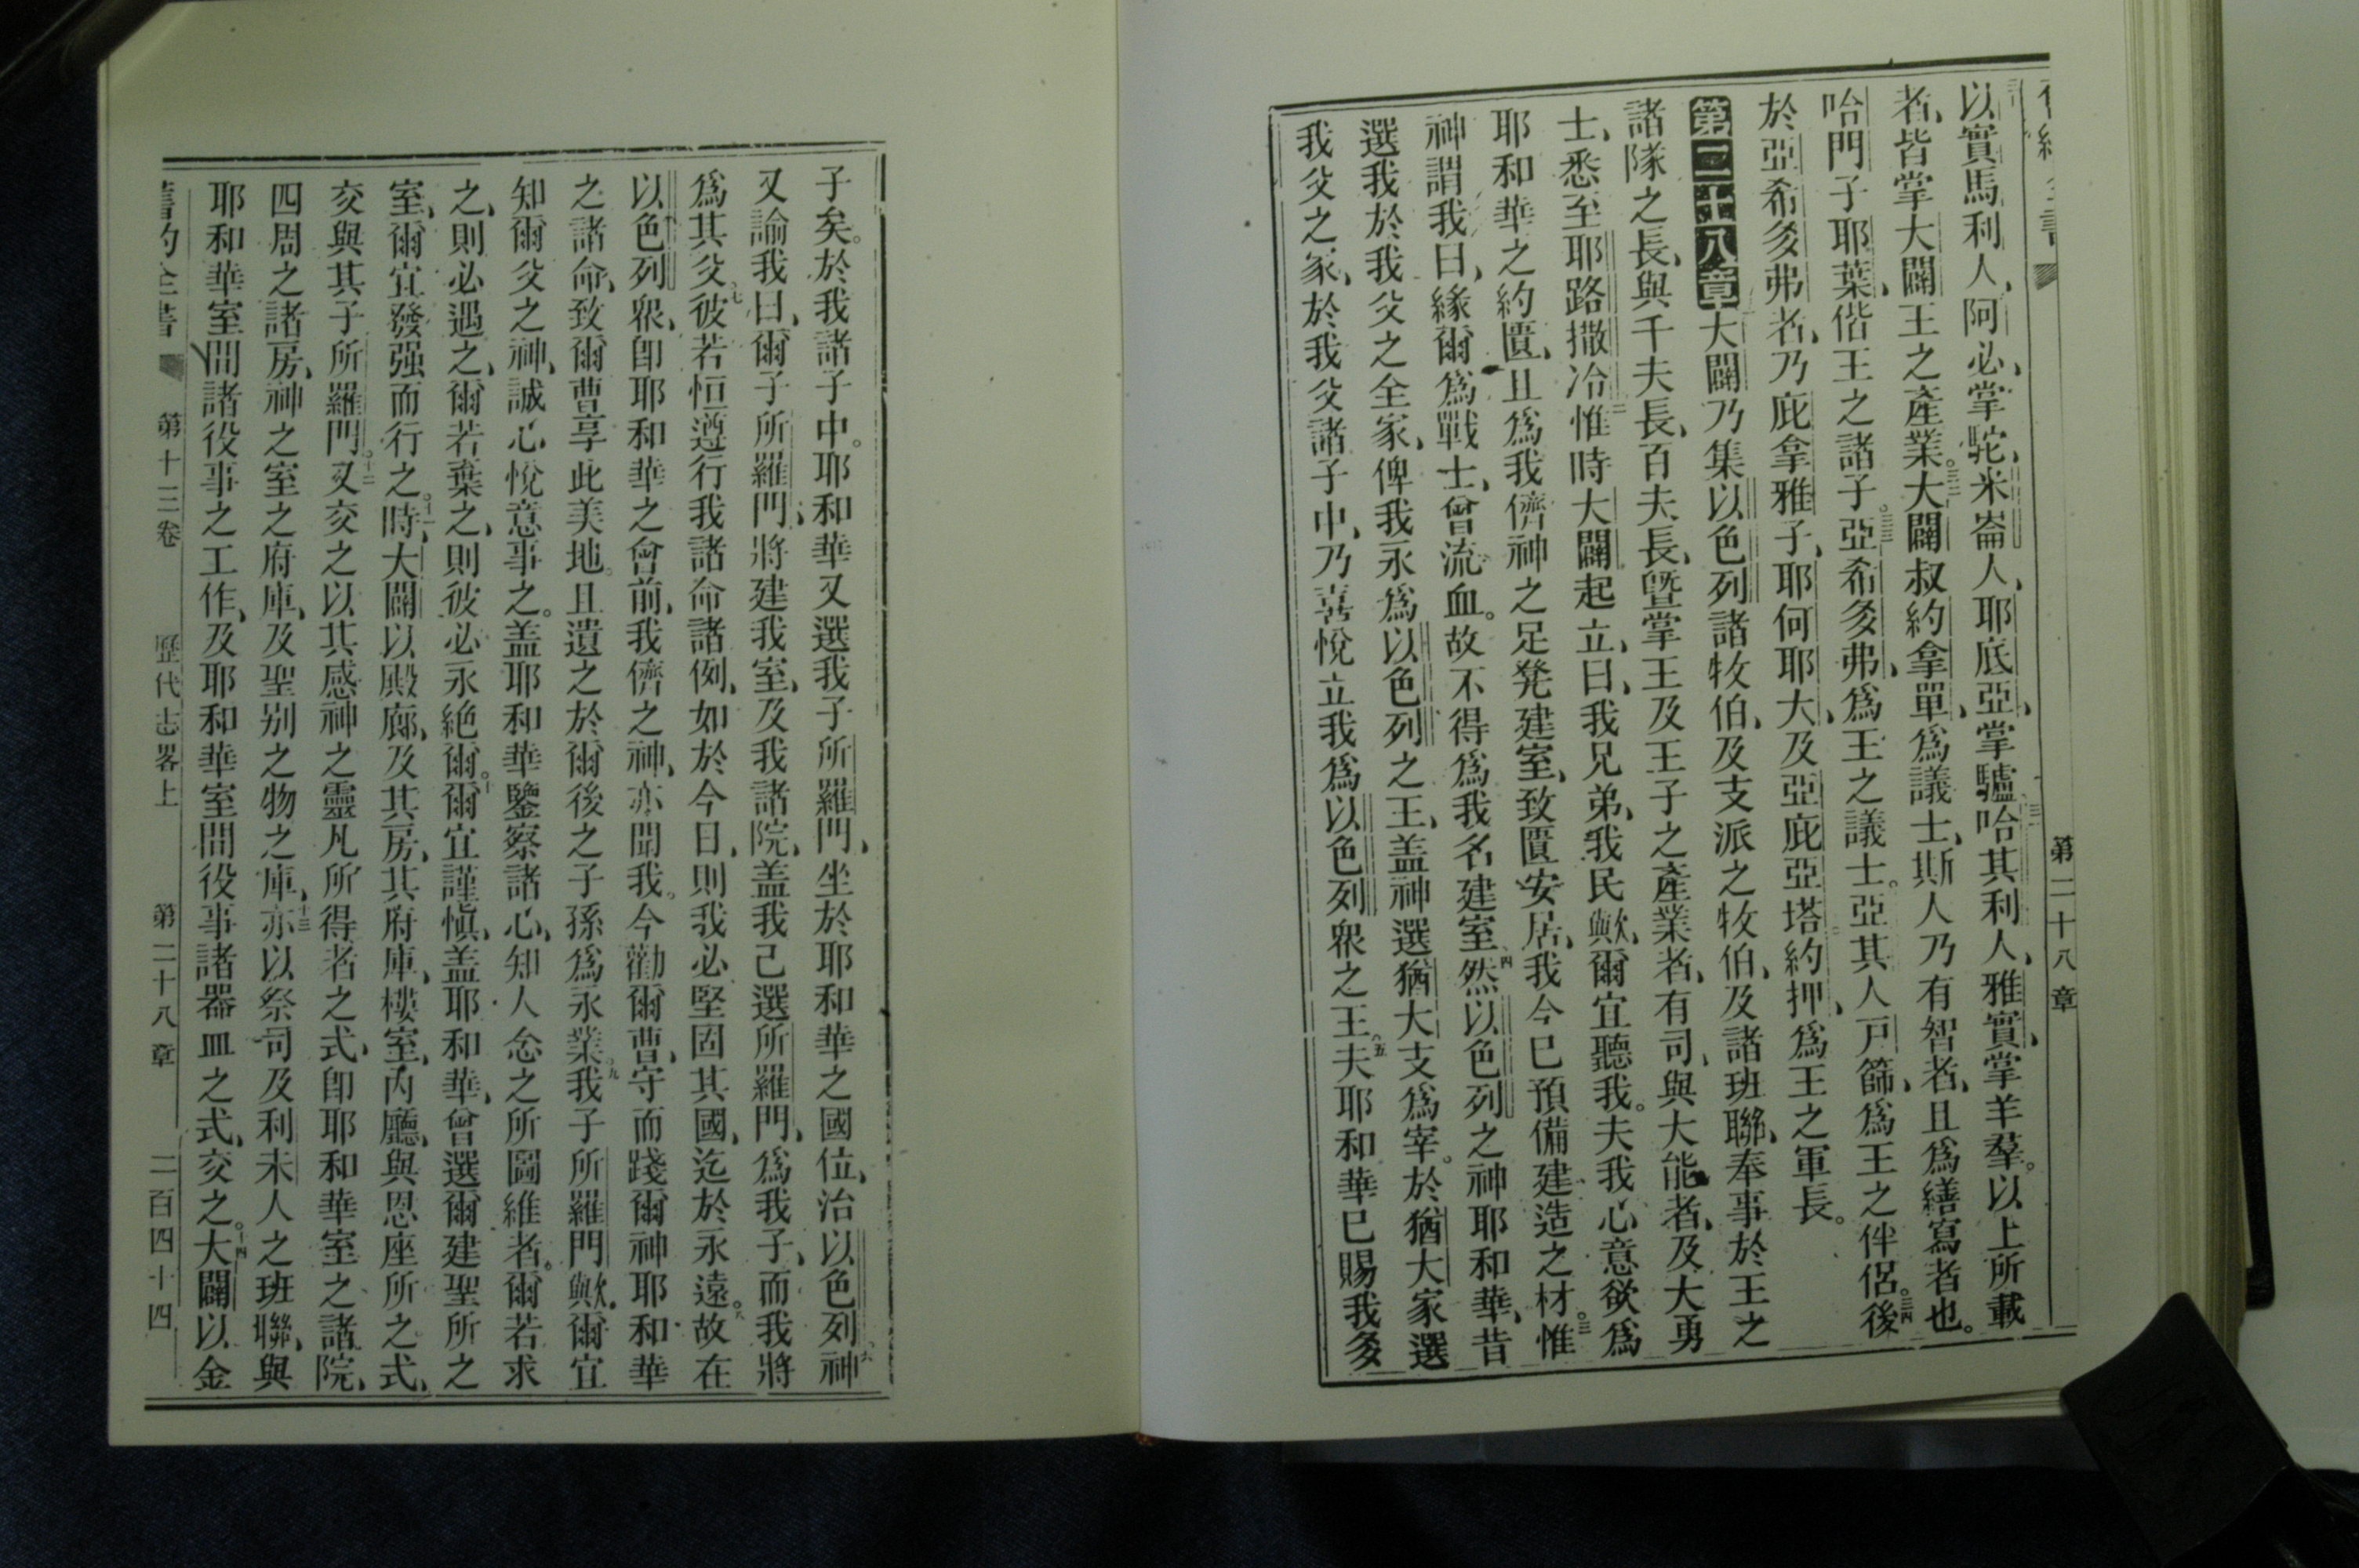 第二十八章
以實馬利人阿必掌駝、米崙人、耶底亞、掌驢、哈其利人、雅實、掌羊羣。以上所載
者、皆掌大闢王之產業。三二大闢叔約拿單、爲議士、斯人乃有智者、且爲繕寫者也。
哈門子耶葉、偕王之諸子。三三亞希多弗、爲王之議士。亞其人戸篩、爲王之伴侶。三四後
於亞希多弗者、乃庇拿雅子、耶何耶大、及亞庇亞塔約押、爲王之軍長。
第二十八章 大闢乃集以色列諸牧伯、及支派之牧伯、及諸班聯、奉事於王之
諸隊之長、與千夫長、百夫長、曁掌王及王子之產業者、有司、與大能者、及大勇
士、悉至耶路撒冷。二惟時大闢起立、曰、我兄弟、我民歟、爾宜聽我。夫我心意欲爲
耶和華之約匱、且爲我儕神之足凳建室、致匱安居、我今已預備建造之材。三惟
神謂我曰、緣爾爲戰士、曾流血。故不得爲我名建室。四然以色列之神耶和華、昔
選我於我父之全家、俾我永爲以色列之王、盖神選猶大支爲宰。於猶大家選
我父之家、於我父諸子中、乃喜悅立我爲以色列衆之王。五夫耶和華已賜我多
子矣。於我諸子中。耶和華又選我子所羅門、坐於耶和華之國位、治以色列。六神
又諭我曰、爾子所羅門、將建我室、及我諸院、盖我已選所羅門、爲我子、而我將
爲其父。七彼若恒遵行我諸命諸例、如於今日、則我必堅固其國、迄於永遠。八故在
以色列衆、卽耶和華之會前、我儕之神、亦聞我。今勸爾曹、守而踐爾神耶和華
之諸命、致爾曹享此美地。且遺之於爾後之子孫爲永業。九我子所羅門歟、爾宜
知爾父之神、誠心悅意事之。盖耶和華鑒察諸心、知人念之所圖維者。爾若求
之、則必遇之、爾若棄之、則彼必永絕爾。十爾宜謹愼、盖耶和華、曾選爾建聖所之
室、爾宜發强而行之。十一時、大闢以殿廊、及其房、其府庫、樓室、內廳、與恩座所之式、
交與其子所羅門。十二又交之以其感神之靈凡所得者之式、卽耶和華室之諸院、
四周之諸房、神之室之府庫、及聖别之物之庫、十三亦以祭司及利未人之班聯、與
耶和華室間諸役事之工作、及耶和華室間役事諸器皿之式、交之。十四大闢以金
舊約全書 第十三卷 歷代志畧上 第二十八章 二百四十四